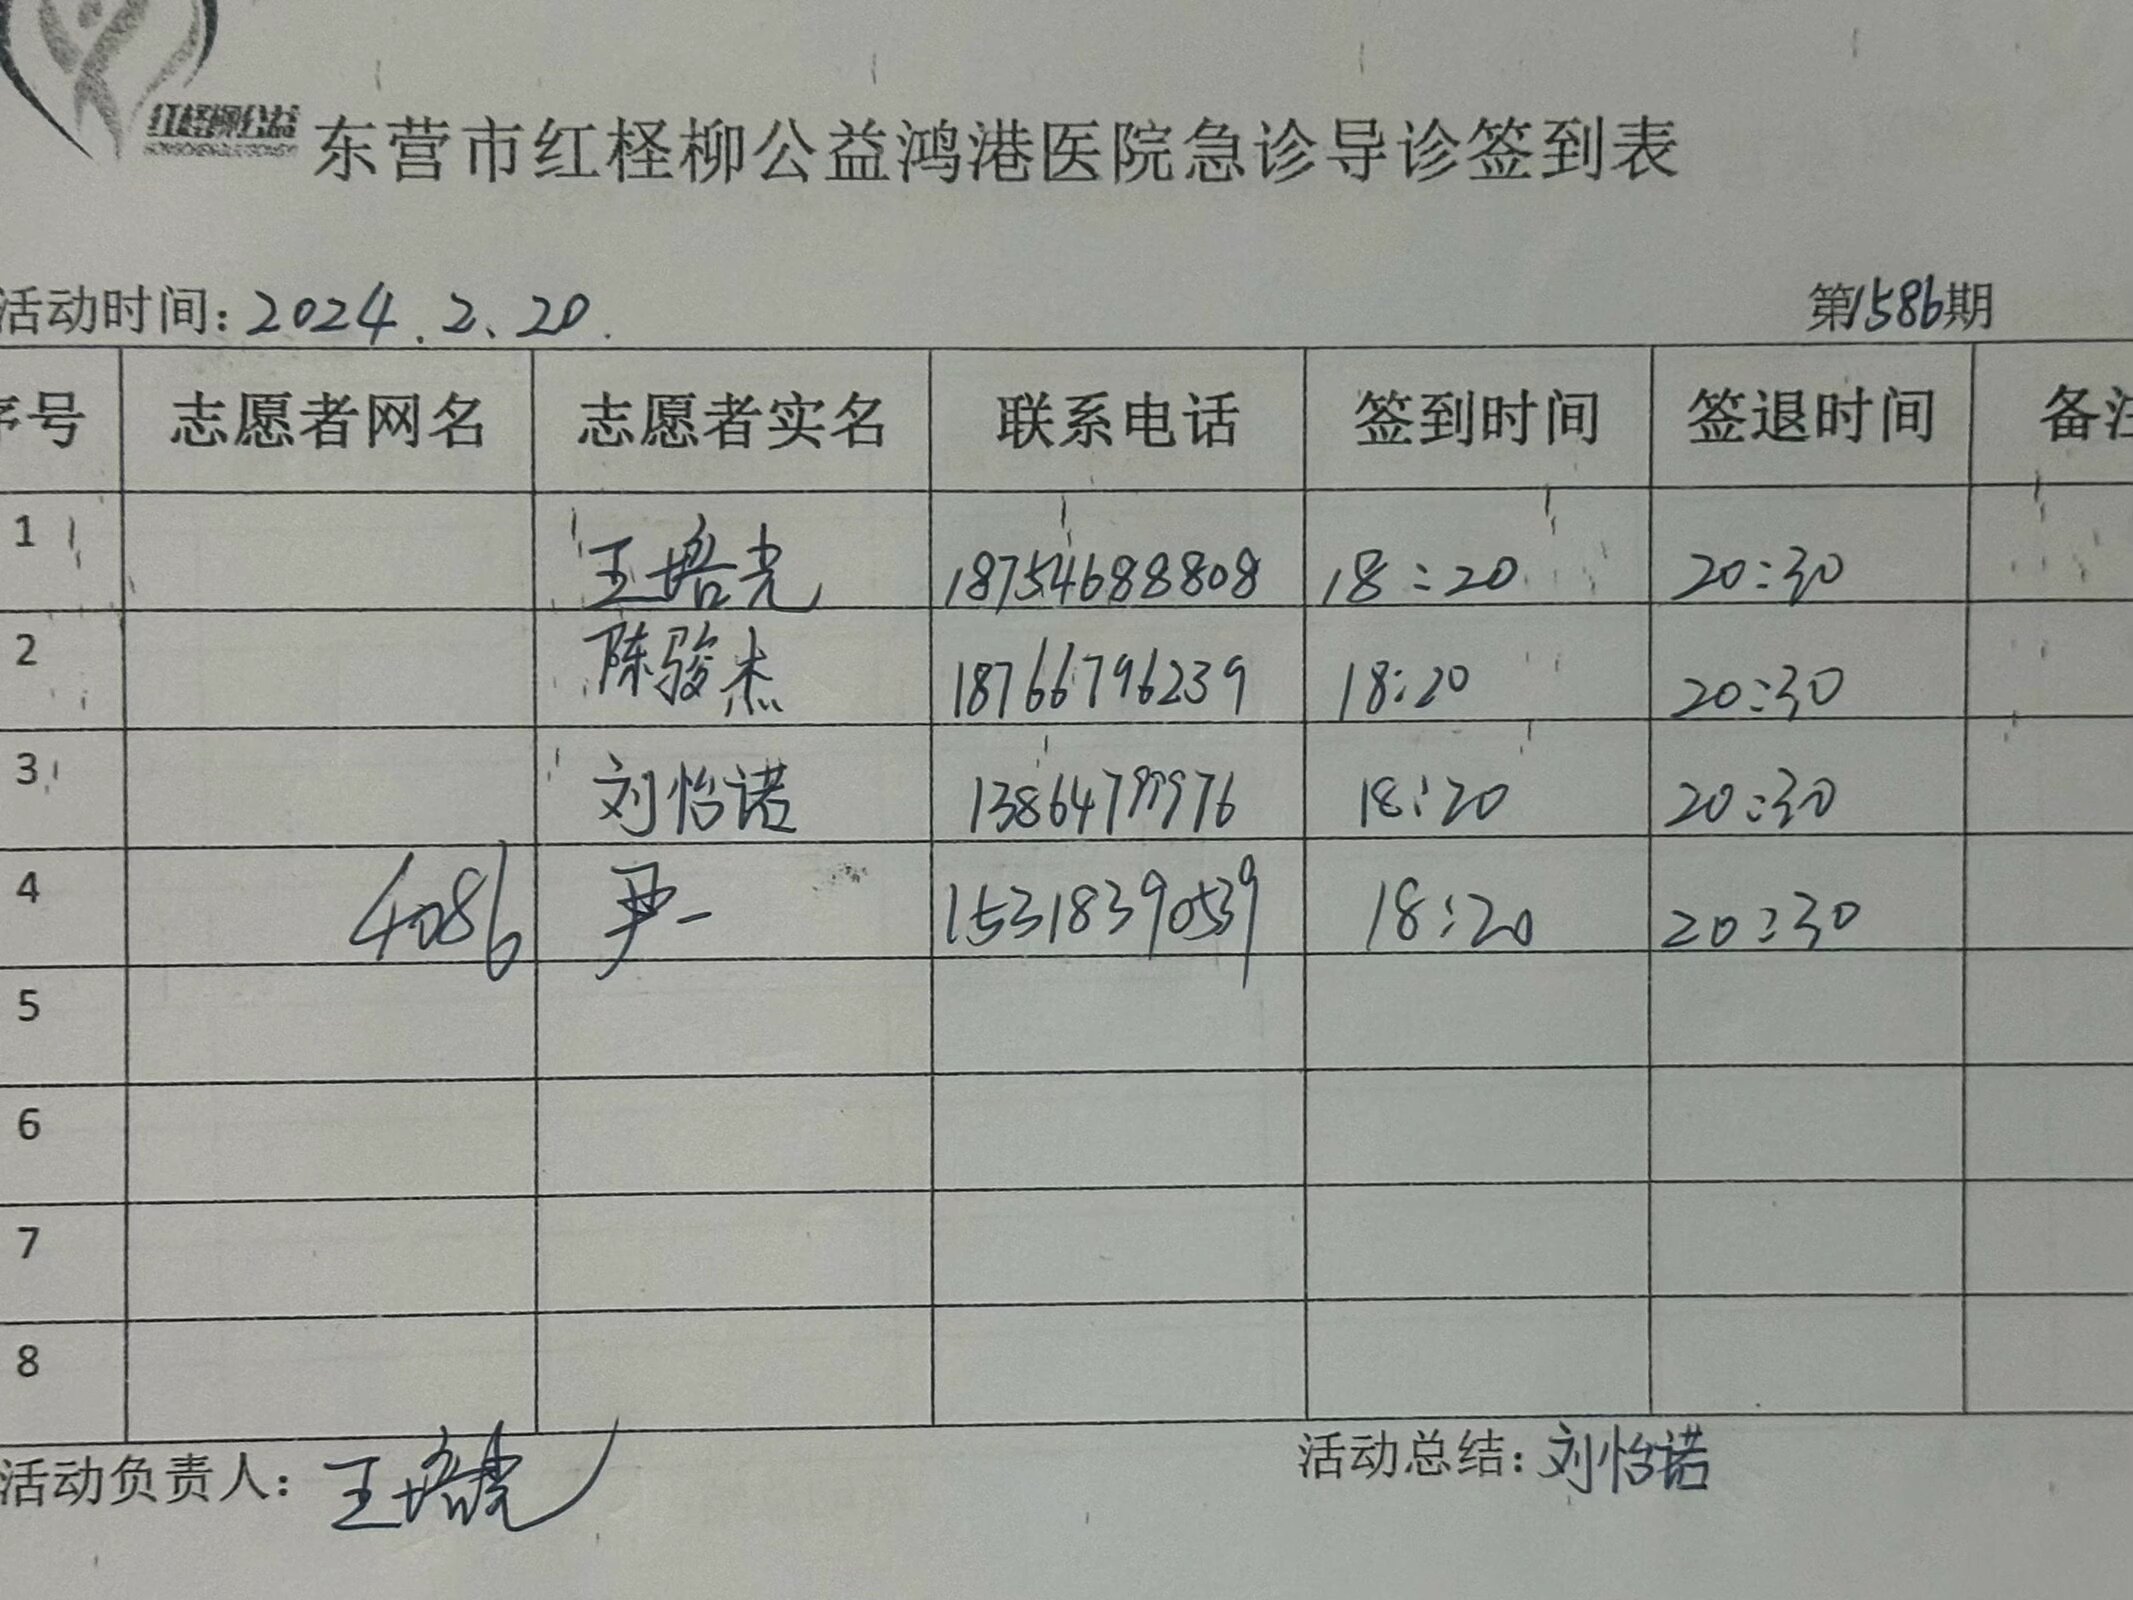 红柽柳公益
东营市红柽柳公益鸿港医院急诊导诊签到表
活动时间: 2024.2.20. 第1586期
序号 志愿者网名 志愿者实名 联系电话 签到时间 签退时间 备注
1 王培光 18754688808 18:20 20:30
2 陈骏杰 18766796239 18:20 20:30
3 刘怡诺 18:20 20:30
4 4086 尹一 15318390539 18:20 20:30
5
6
7
8
活动负责人: 王培光 活动总结: 刘怡诺